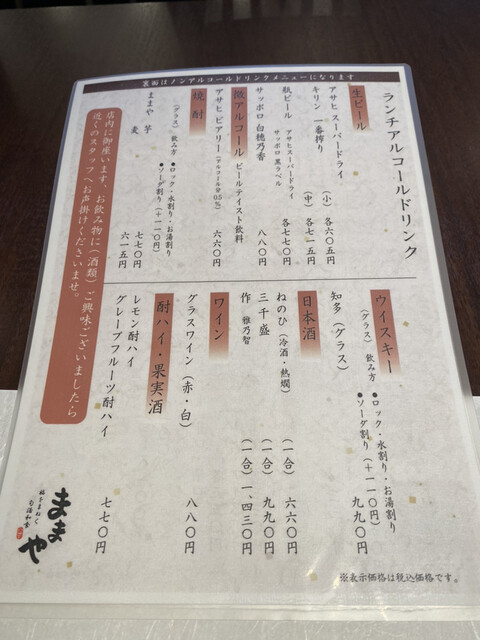 裏面はノンアルコールドリンクメニューになります
ランチアルコールドリンク
生ビール
アサヒ スーパードライ (小) 各六〇五円
キリン 一番搾り (中) 各七一五円
瓶ビール アサヒスーパードライ 各七七〇円
サッポロ黒ラベル
サッポロ 白穂乃香 八八〇円
微アルコール ビールテイスト飲料
アサヒ ビアリー(アルコール分0.5%) 六六〇円
焼酎
(グラス) 飲み方 ●ロック・水割り・お湯割り
●ソーダ割り(+一一〇円)
ままや 芋 七七〇円
麦 六一五円
店内に御座います、お飲み物に(酒類)ご興味ございましたら
近くのスタッフへお声掛けくださいませ。
ウイスキー
(グラス) 飲み方 ●ロック・水割り・お湯割り
●ソーダ割り(+一一〇円)
知多(グラス) 九九〇円
日本酒
ねのひ(冷酒・熱燗) (一合) 六六〇円
三千盛 (一合) 九九〇円
作 雅乃智 (一合) 一、四三〇円
ワイン
グラスワイン(赤・白) 八八〇円
酎ハイ・果実酒
レモン酎ハイ
グレープフルーツ酎ハイ 七七〇円
福をまねく
旬海和食
ままや
※表示価格は税込価格です。